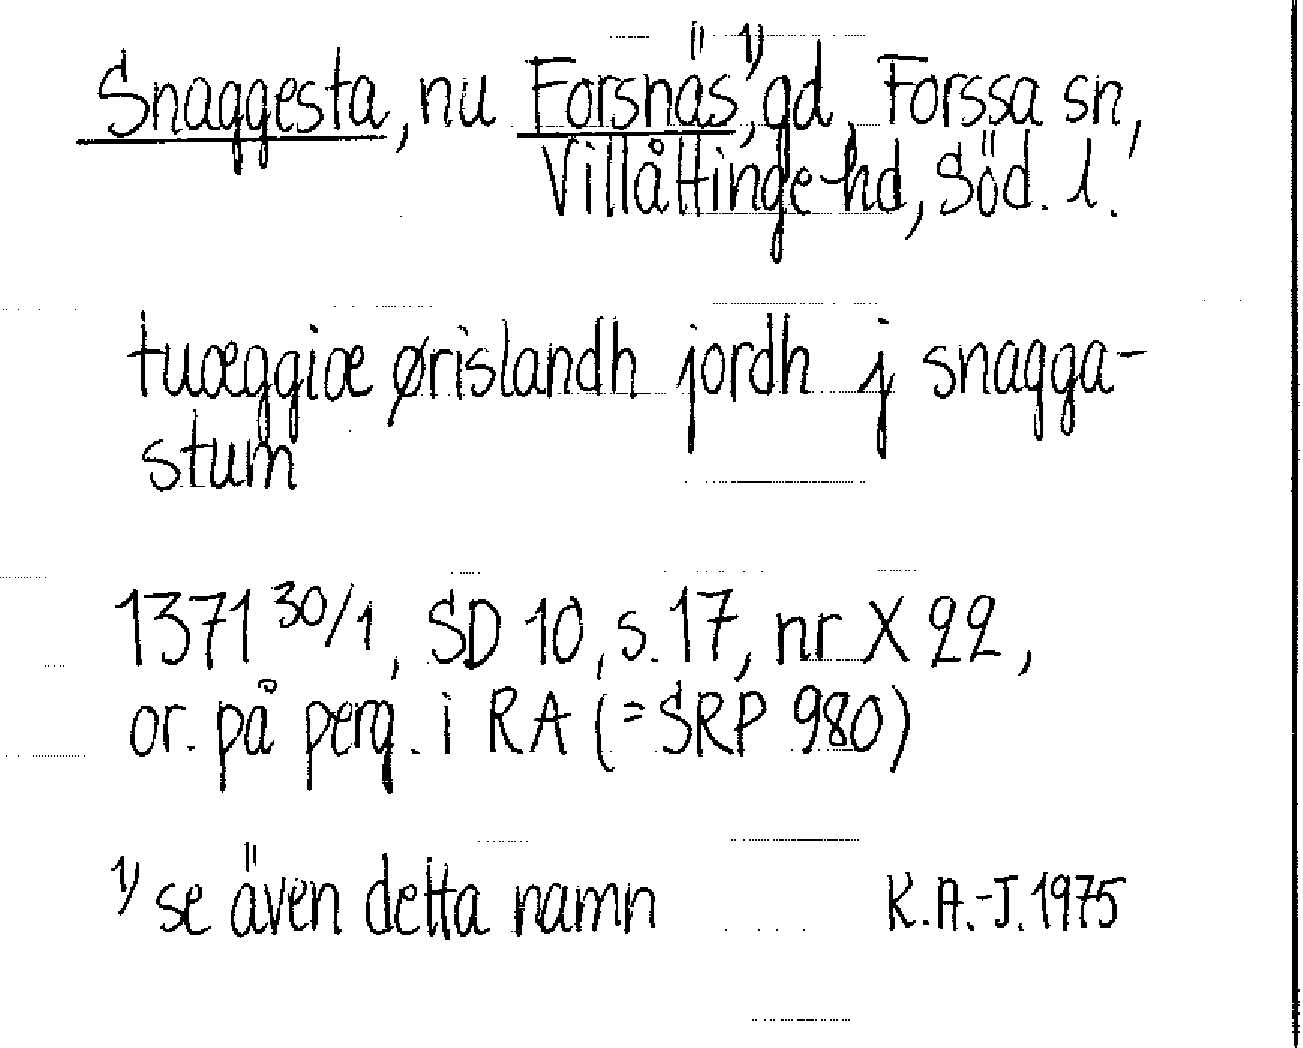 Snaggesta, nu Forsnäs¹⁾, gd, Forssa sn,
Villåttinge hd, Söd. l.
tuæggiæ ørislandh jordh j snagga-
stum
1371 30/1, SD 10, s. 17, nr X 22,
or. på perg. i RA (= SRP 980)
¹⁾ se även detta namn K.A.-J. 1975